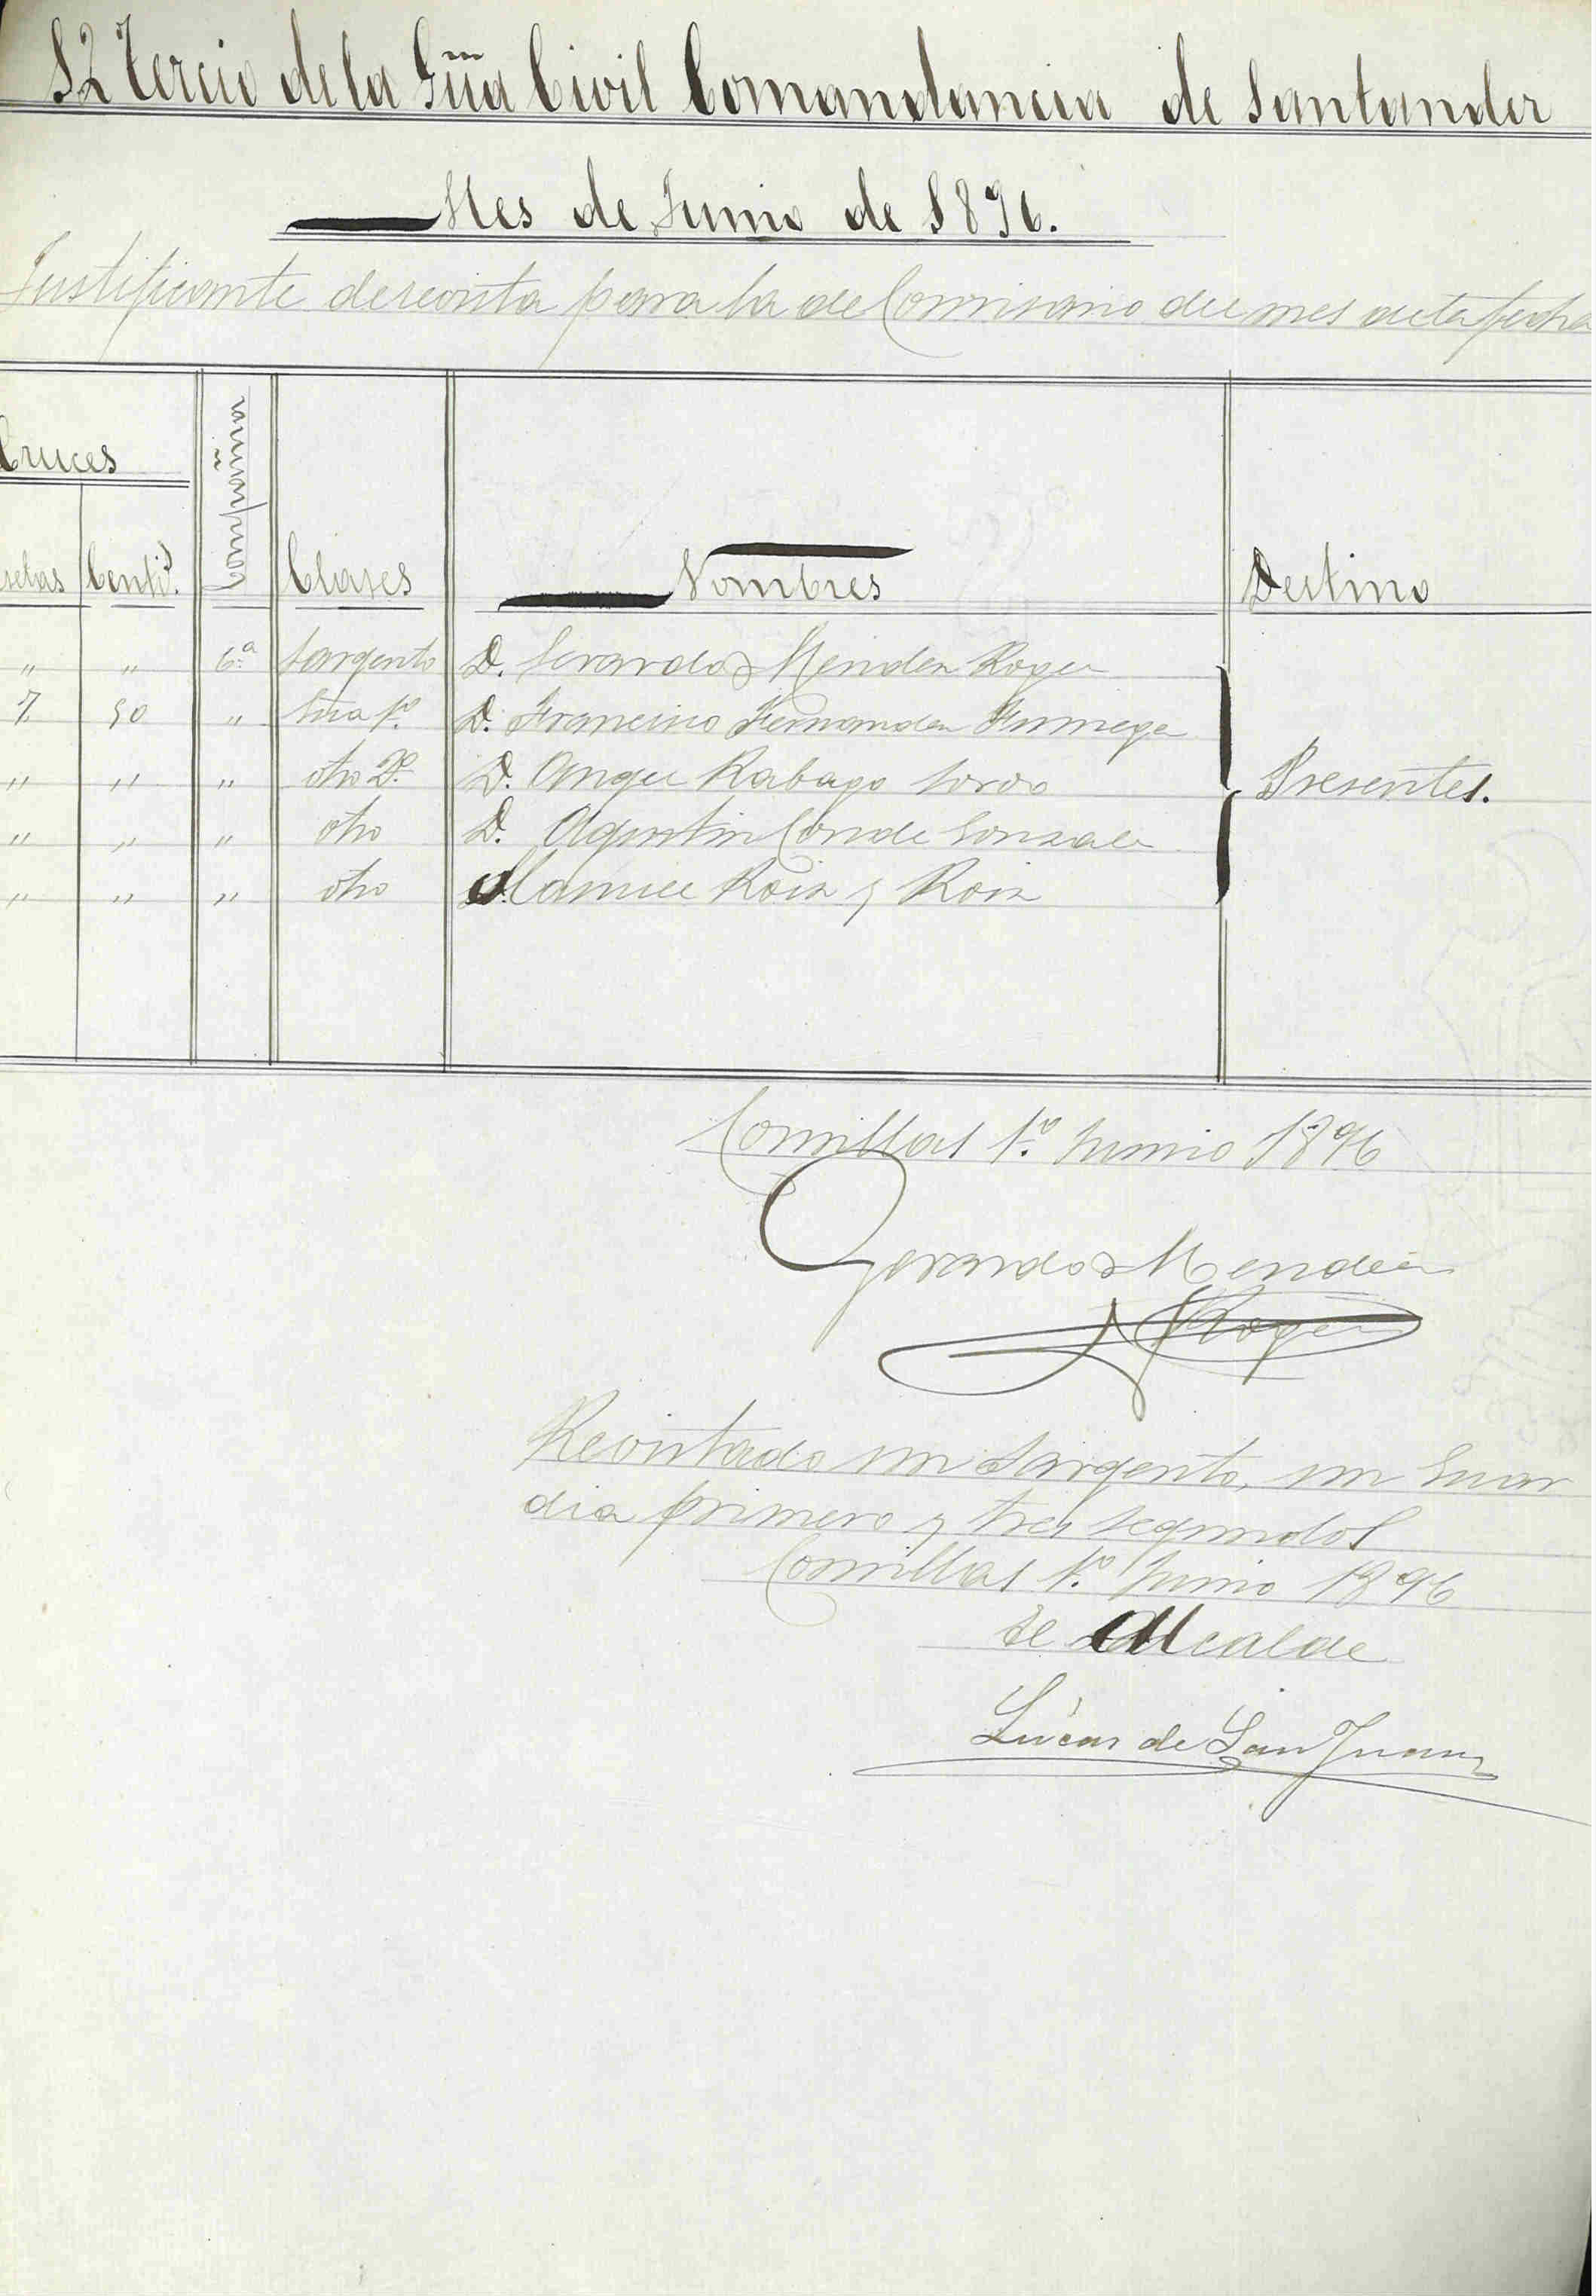 12 Tercio de la Gũa Civil Comandancia de Santander
Mes de Junio de 1896.
Justificante de revista para la de Comisario del mes de la fecha
Cruces
setas Centi.s Compañia Clases Nombres Destino
" " 6.ª Sargento D. Gerardo Mendez Roger
7 50 " Gũa 1.º D. Francisco Fernandez
" " " otro 2.º D. Angel Rabago Sordo
Presentes.
" " " otro D. Agustin Conde Gonzalez
" " " otro Manuel Roiz y Roiz
Comillas 1.º Junio 1896
Gerardo Mendez
Roger
Revistado un Sargento, un Guar
dia primero y tres segundos
Comillas 1.º Junio 1896
El Alcalde
Lúcas de San Juan